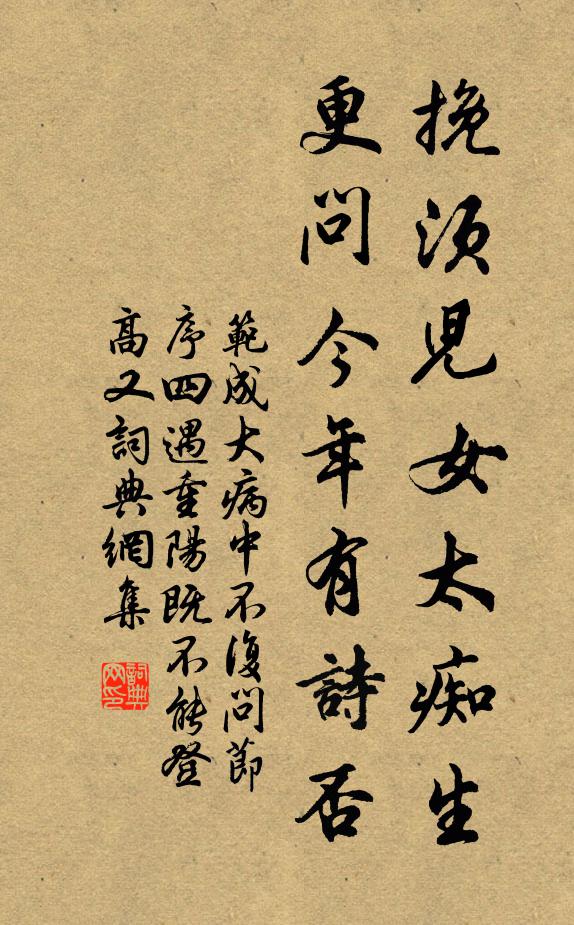 挽須兒女太痴生
更問今年有詩否
範成大病中不復問節
序四遇重陽既不能登
高又詞典網集
詞典網印